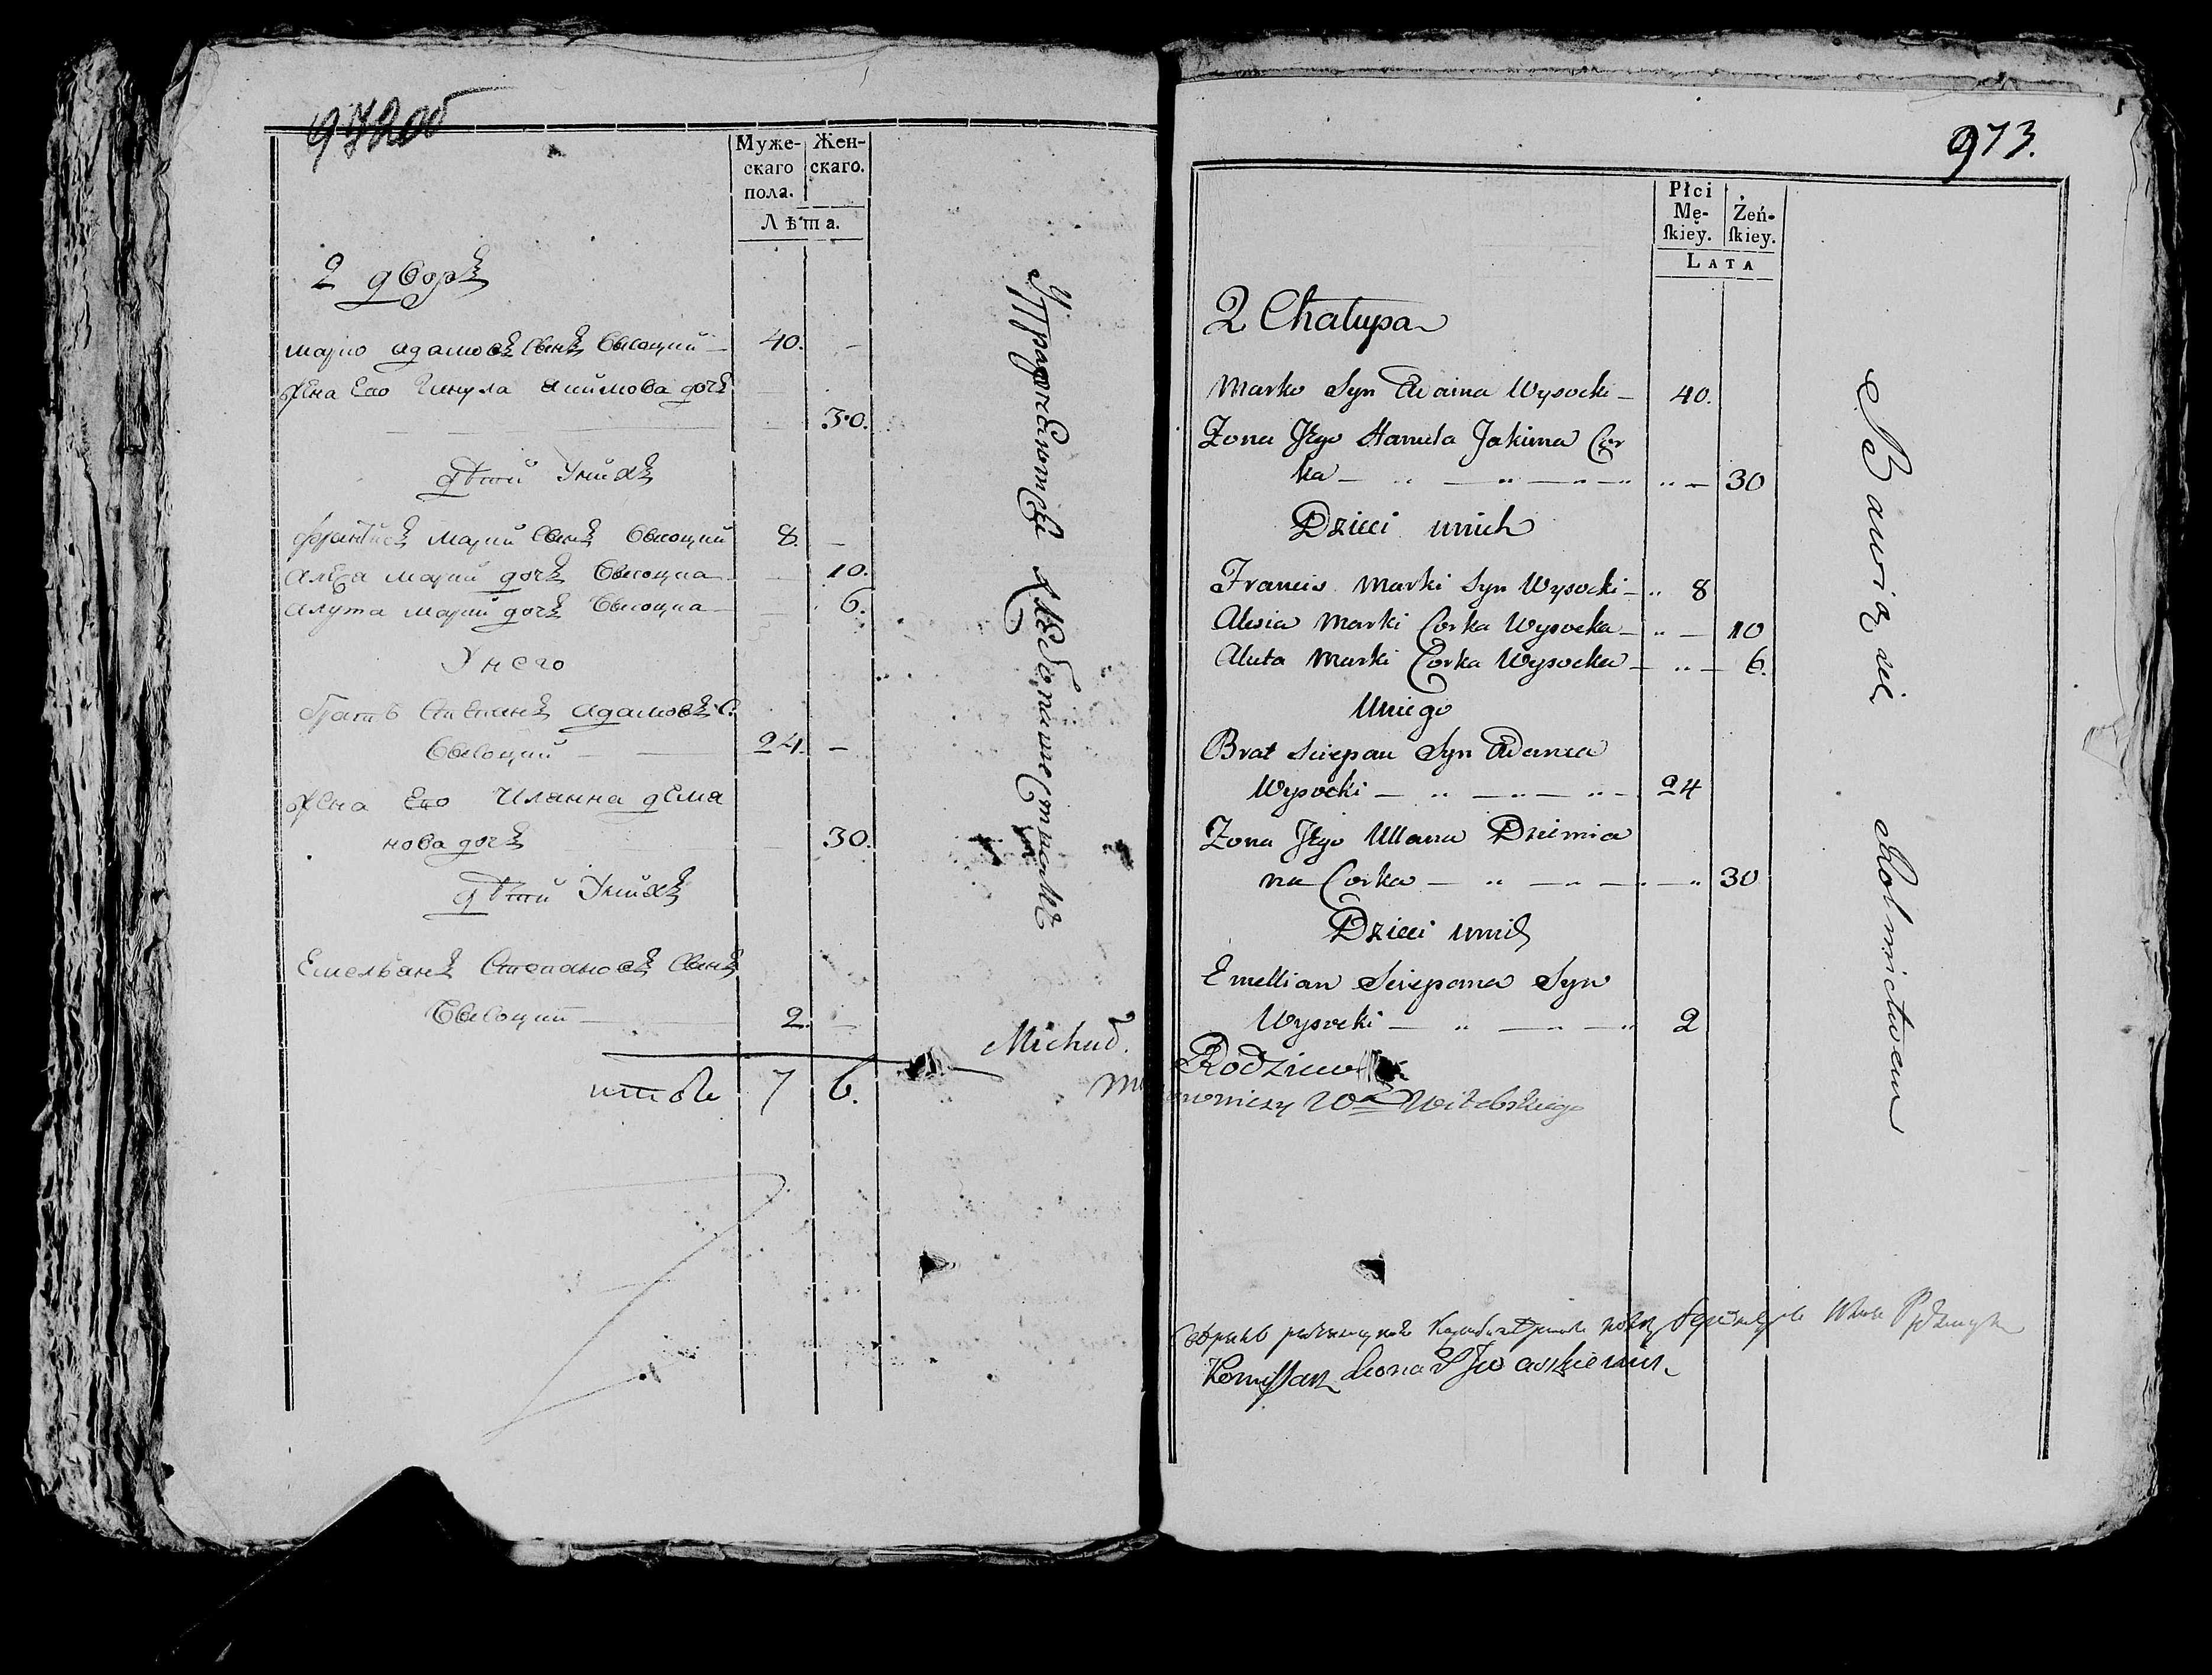 972об
Муже- Жен-
скаго скаго.
пола.
Лѣта.
2 дворъ
Марко адамовъ сынъ высоцкий — 40. —
Жена Его Ганула акимова дочъ
30.
дѣти Унихъ
францискъ марки сынъ высоцкий 8. —
алеся марки дочъ высоцка — 10.
алута марки дочъ высоцка — 6.
Унего
братъ степанъ адамовъ с.
высоцкий — 24. —
Жена Его Уляна дема
нова дочъ 30.
дѣти Унихъ
Емельянъ степановъ сынъ
высоцкий — 2. —
итого 7 6.
Упражняются хлебопашествомъ
973.
Płci
Mę- Żeń-
ſkiey. ſkiey.
LATA
2 Chałupa
Marko Syn Adama Wysocki — 40.
Zona Jego Hanula Jakima Cor
ka — 30
Dzieci unich
Francis Marki Syn Wysocki — 8
Alesia Marki Corka Wysocka — 10
Aluta Marki Corka Wysocka — 6.
Uniego
Brat Sciepan Syn Adama
Wysocki — 24
Zona Jego Ullana Dziemia
na Corka — 30
Dzieci unich
Emellian Sciepana Syn
Wysocki — 2
Bawią się Rolnictwem
Michał
Rodziewicz
Woa Witebskiego
Komissarz Leonard Iwaszkiewicz